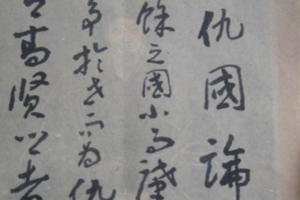 仇國論
餘之國小而肇
爭於世而為仇
高賢卿者